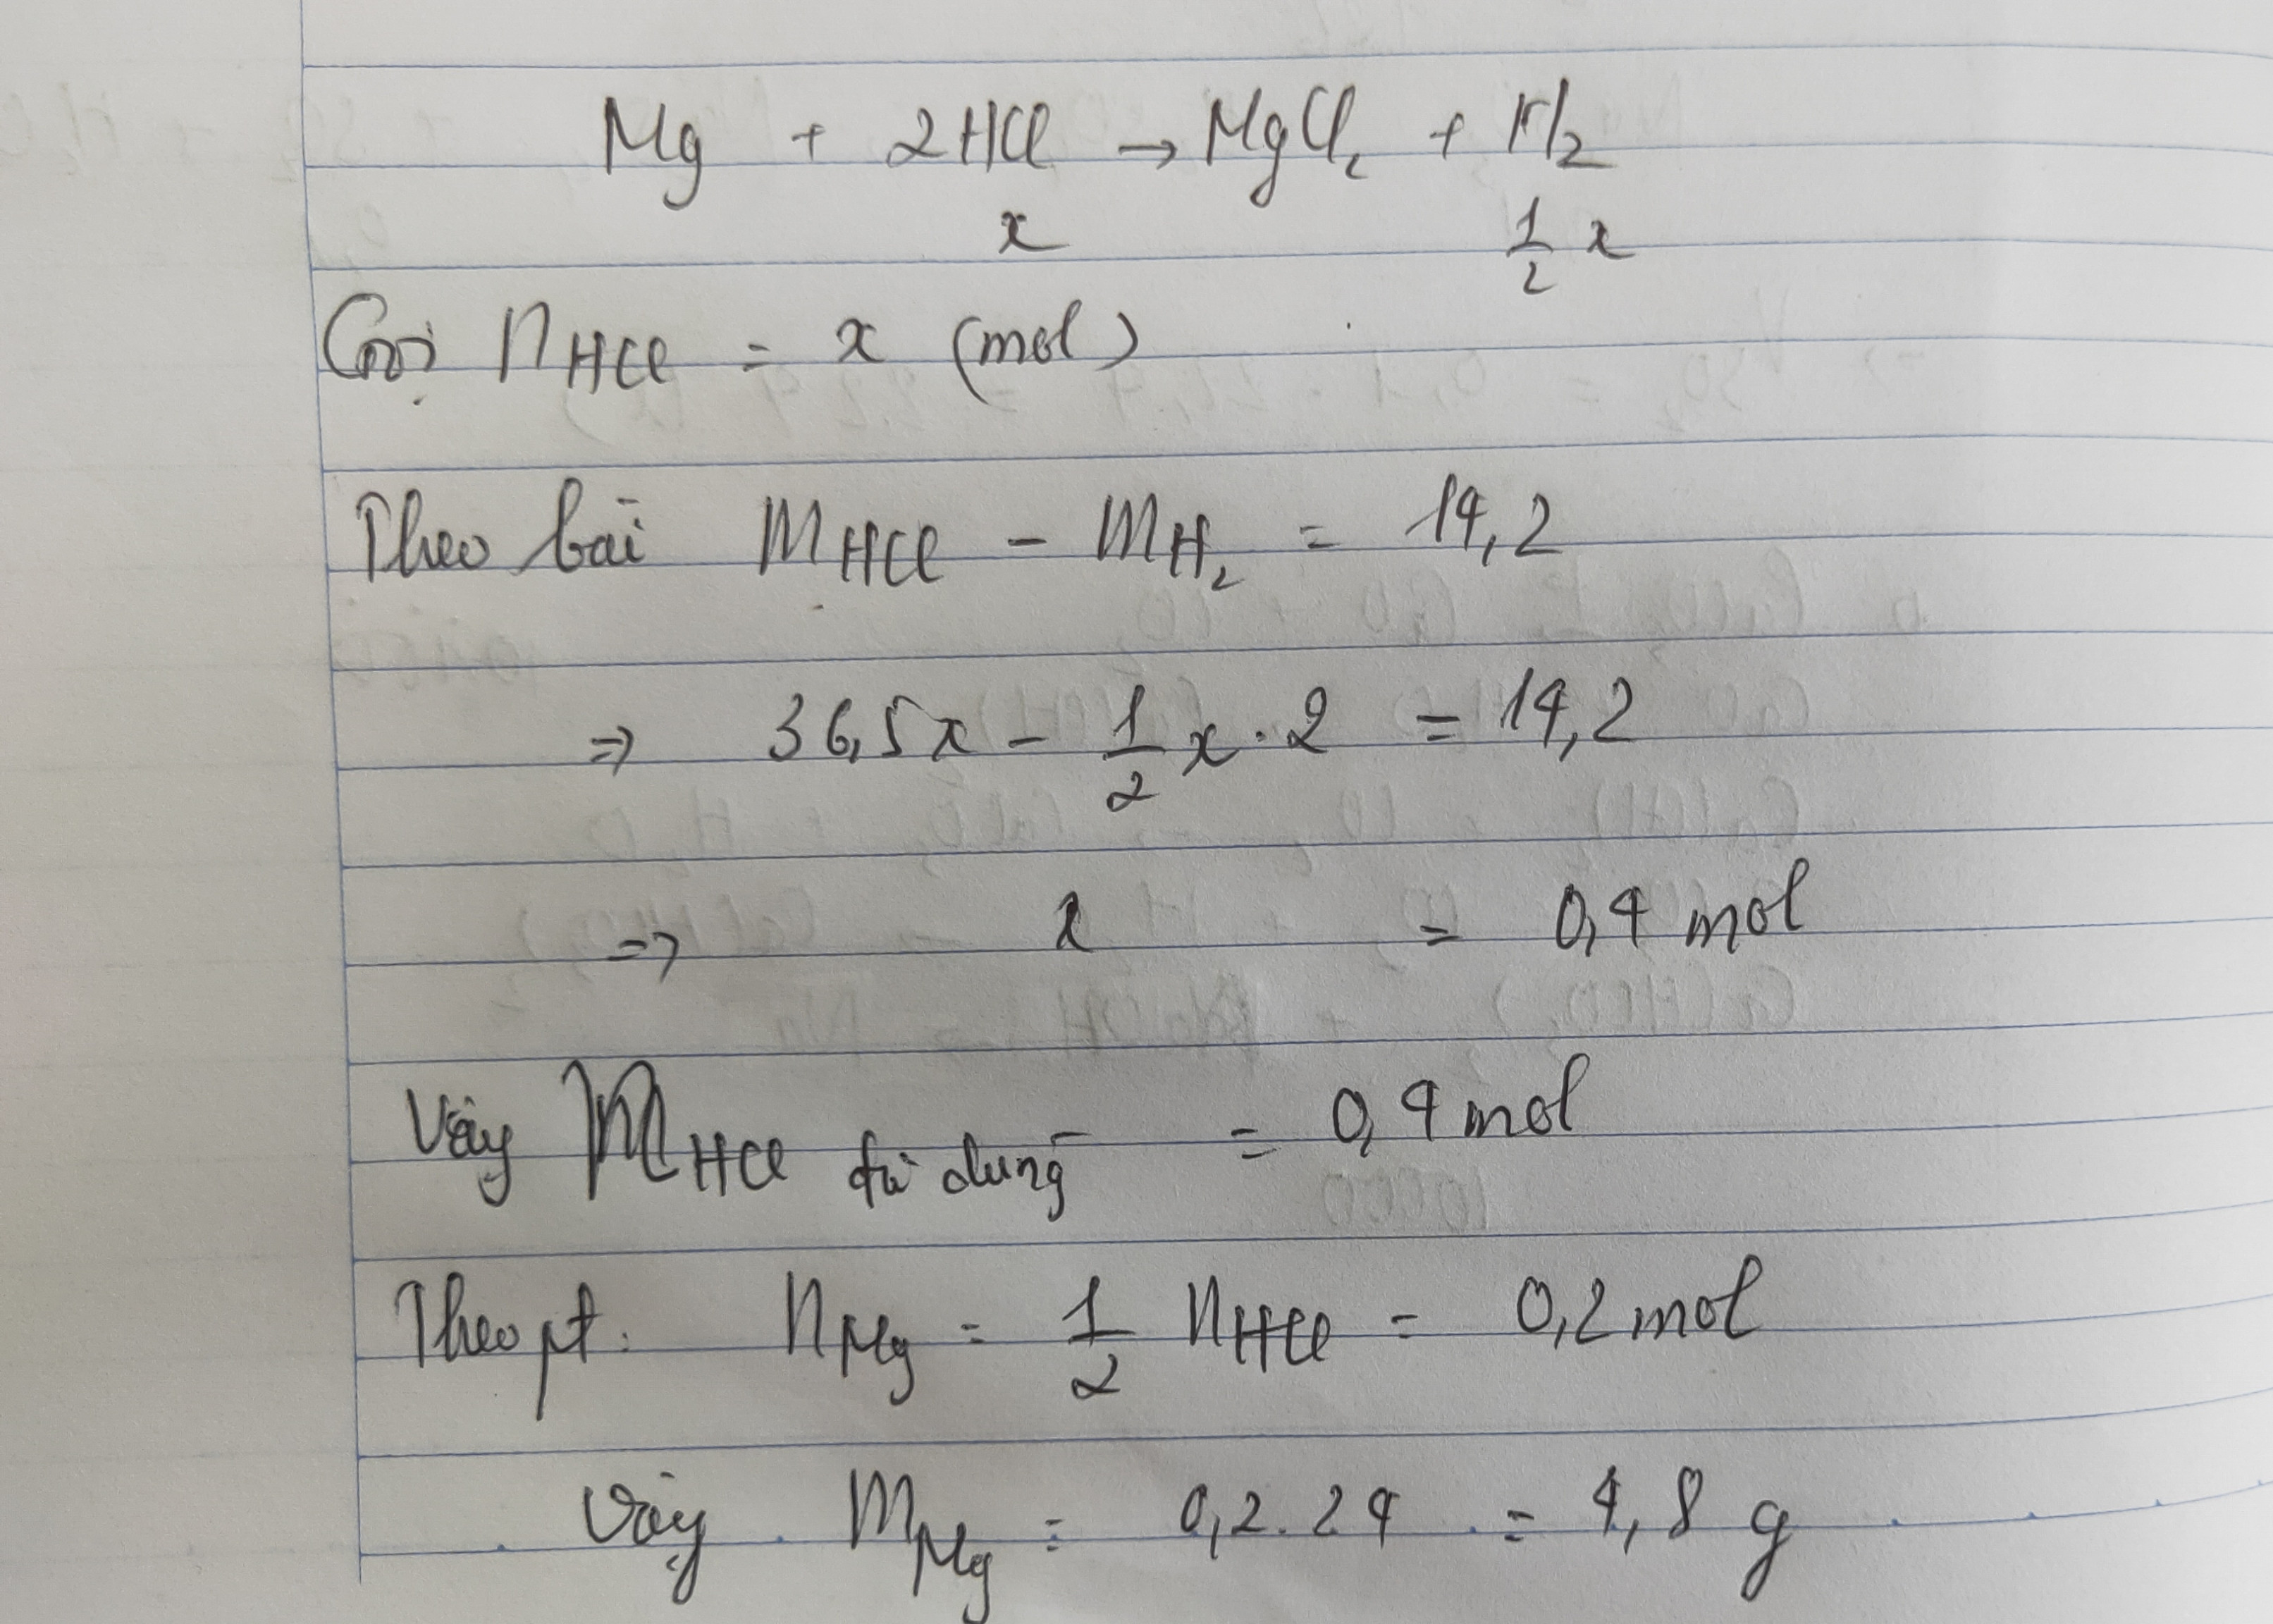 Mg + 2HCl → MgCl₂ + H₂
x 1/2 x
Gọi nHCl = x (mol)
Theo bài mHCl - mH₂ = 14,2
=> 36,5x - 1/2 x . 2 = 14,2
=> x = 0,4 mol
Vậy mHCl đã dùng = 0,4 mol
Theo pt: nMg = 1/2 nHCl = 0,2 mol
Vậy mMg = 0,2 . 24 = 4,8 g